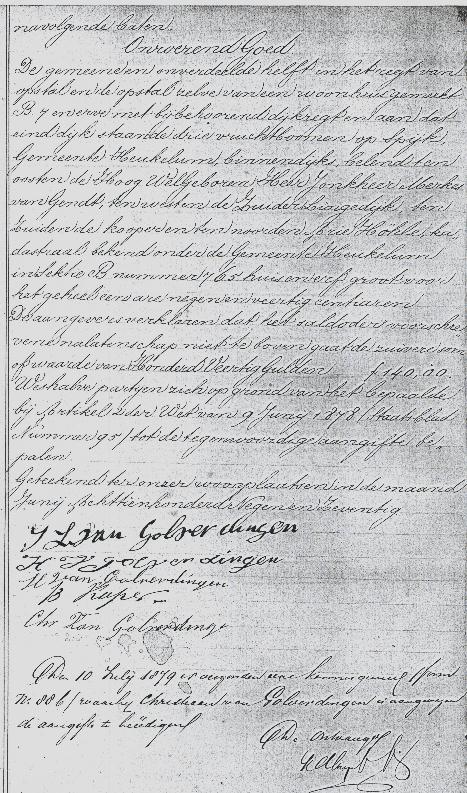 navolgende baten.
Onroerend Goed
De gemeene en onverdeelde helft in het regt van
opstal en de opstal zelve van een woonhuis gemerkt
B. 7 en erve met bijbehoorend dijkregt en aan dat
eind dijk staande drie vruchtboomen op Spijk,
Gemeente Heukelum, binnendijk, belend ten
oosten de Hoog WelGeboren Heer Jonkheer Merkes
van Gendt, ten westen de Zuider Lingedijk, ten
Zuiden de kooper en ten noorden Arie Hokke, ka,
dastraal bekend onder de Gemeente Heukelum
in sektie B nummer 765 huis en erf groot voor
het geheel eene are negen en veertig centiaren
De aangevers verklaren dat het saldo der voorschre
vene nalatenschap niet te boven gaat de zuivere som
of waarde van Honderd Veertig Gulden f 140,00
Weshalve partyen zich op grond van het bepaalde
bij Artikel 2 der Wet van 9 Juny 1878 / Staatsblad
Nummer 95 / tot de tegenwoordige aangifte be,
palen.
Geteekend ter onzer woonplaatsen in de maand
Junij Achttienhonderd Negen en Zeventig
van Golverdingen
golverdingen
H van Golverdingen
B Kuper
Chr van Golverdinge
Den 10 July 1879 is
No. 886 / waarby Christiaan van Golverdingen is aangewezen
de aangifte te beëedigen
De Ontvanger